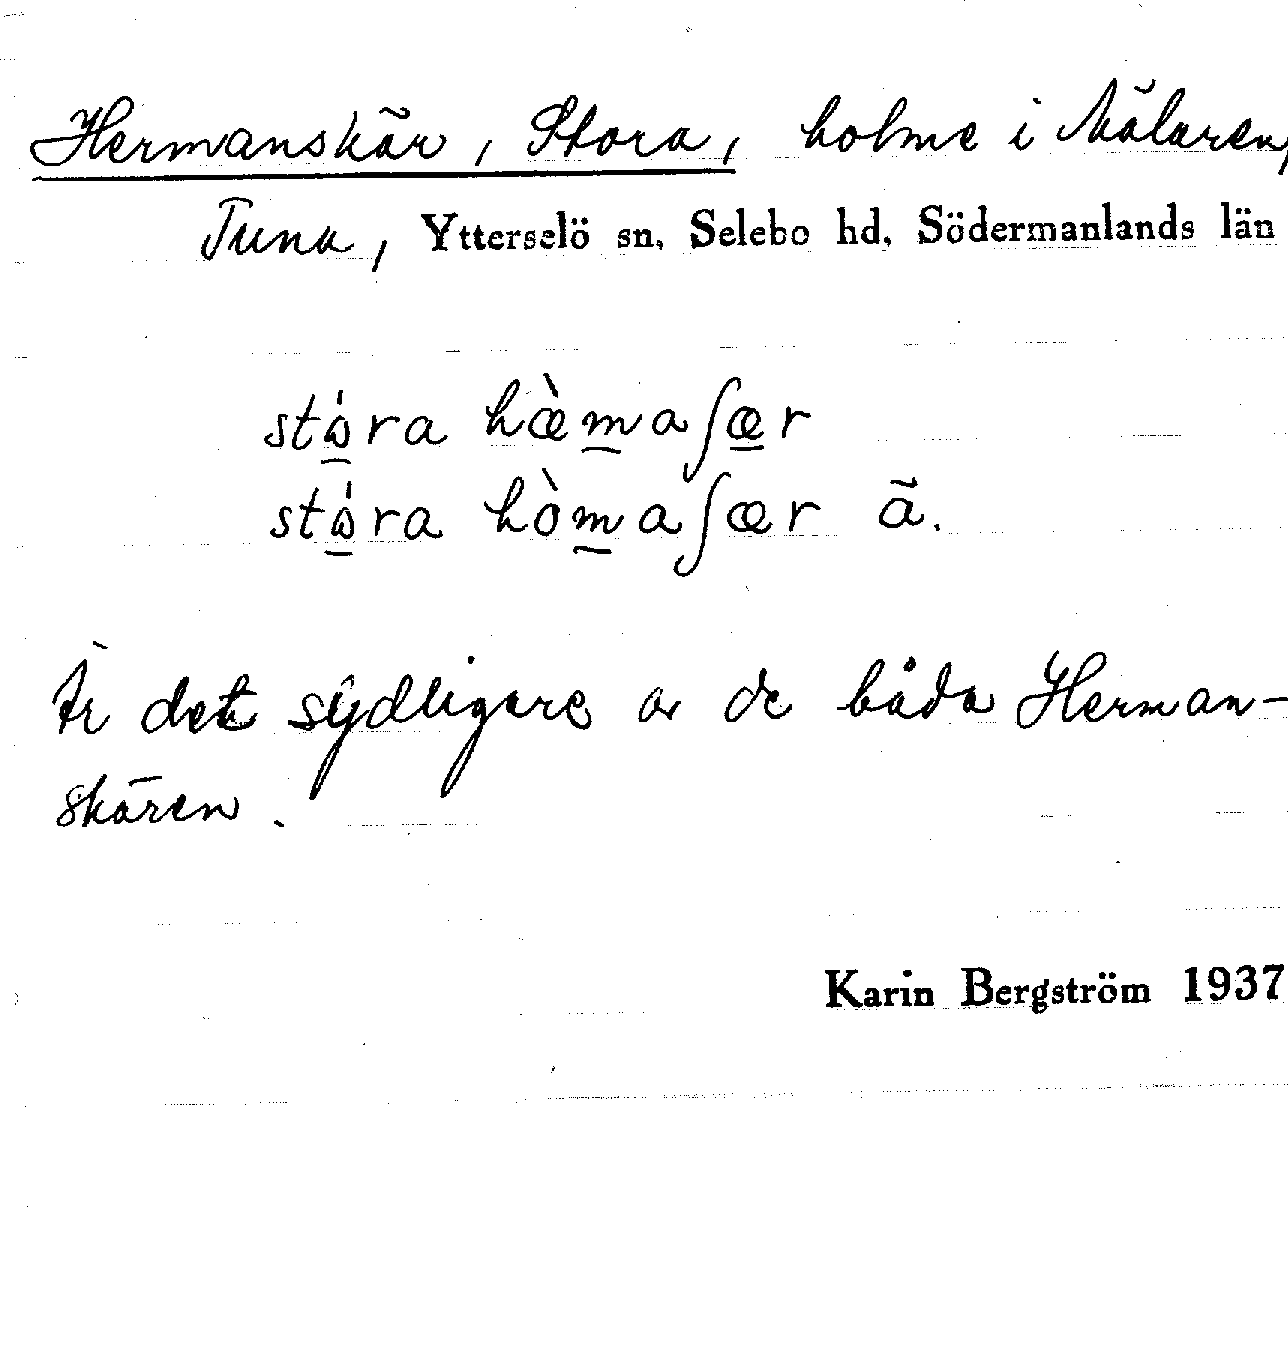 Hermanskär, Stora, holme i Mälaren,
Tuna, Ytterselö sn, Selebo hd, Södermanlands län
stɷ́ra hæ̀maʃær
stɷ́ra hòmaʃær ä.
Är det sydligare av de båda Herman-
skären.
Karin Bergström 1937